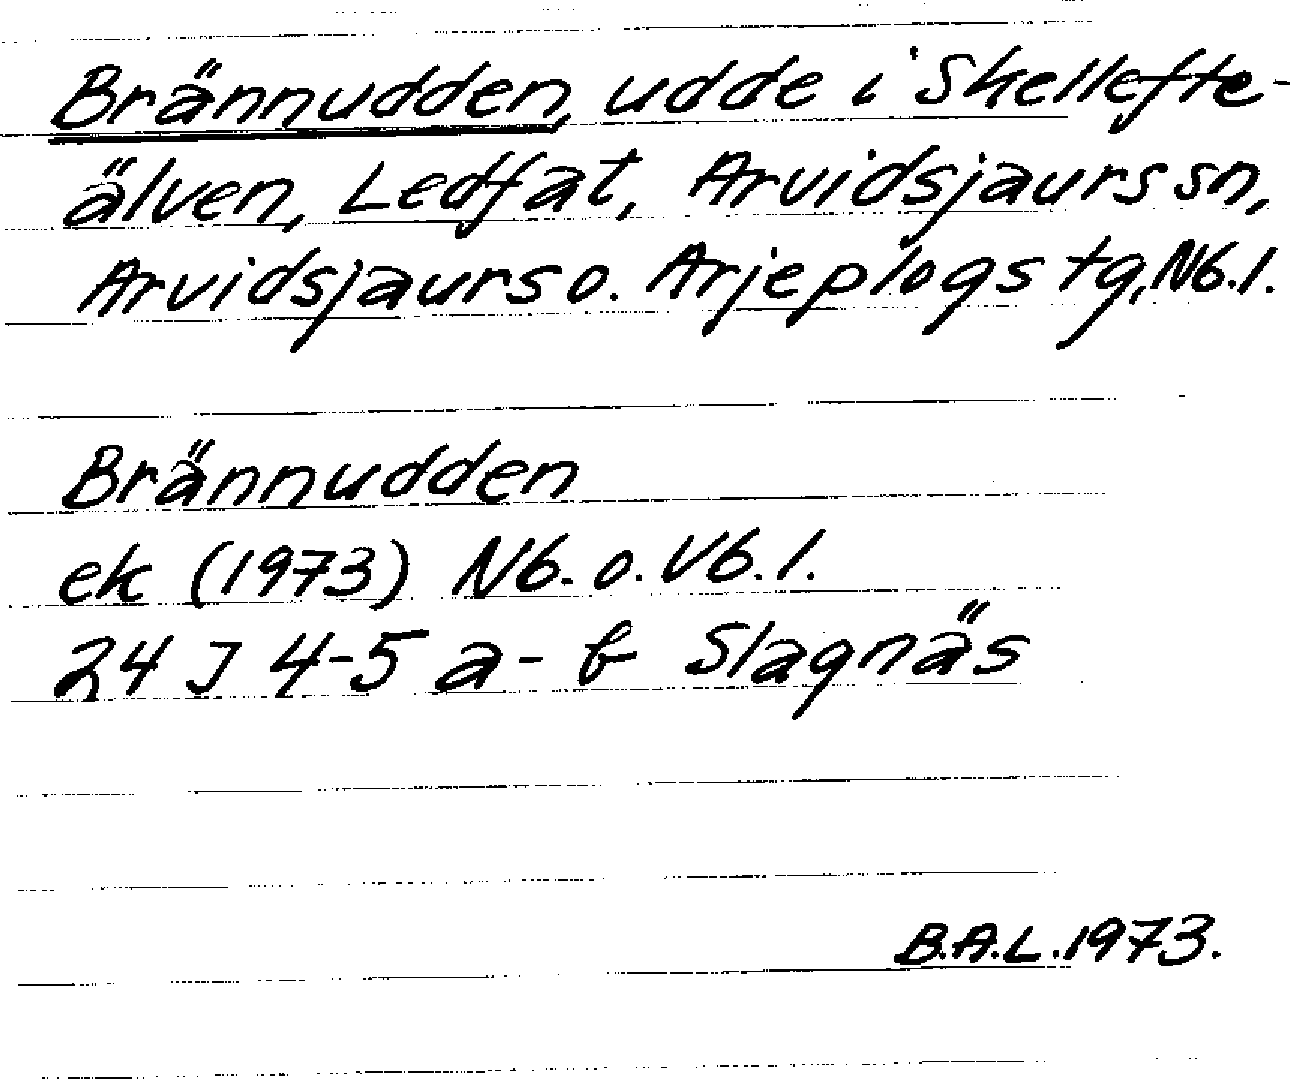 Brännudden, udde i Skellefte-
älven, Ledfat, Arvidsjaurs sn,
Arvidsjaurs o. Arjeplogs tg, Nb.l.
Brännudden
ek (1973) Nb. o. Vb.l.
24 J 4-5 a - b Slagnäs
B.A.L. 1973.